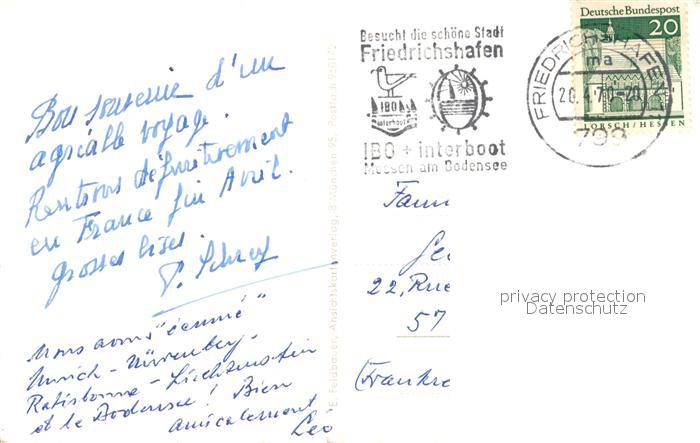 Bon souvenir d'un
agréable voyage.
Rentrons définitivement
en France fin Avril.
Grosses bises.
Nous avons "écumé"
Munich - Nüremberg -
Ratisbonne - Liechtenstein
et le Bodensee! Bien
amicalement
Léo
E. Feldbauer, Ansichtskartenverlag, 8 München 95, Postfach
Besucht die schöne Stadt
Friedrichshafen
IBO
interboot
IBO + interboot
Messen am Bodensee
FRIEDRICHSHAFEN
ma
20.4.70-20
799
Deutsche Bundespost
20
LORSCH/HESSEN
Fam
22, Rue
57
(Frankre
privacy protection
Datenschutz